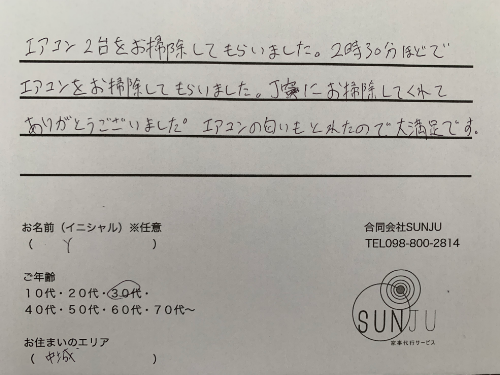 エアコン2台をお掃除してもらいました。2時30分ほどで
エアコンをお掃除してもらいました。丁寧にお掃除してくれて
ありがとうございました。エアコンの匂いもとれたので大満足です。
お名前（イニシャル）※任意
（ Y ）
ご年齢
10代・20代・30代・
40代・50代・60代・70代〜
お住まいのエリア
（ 中城 ）
合同会社SUNJU
TEL098-800-2814
SUNJU
家事代行サービス